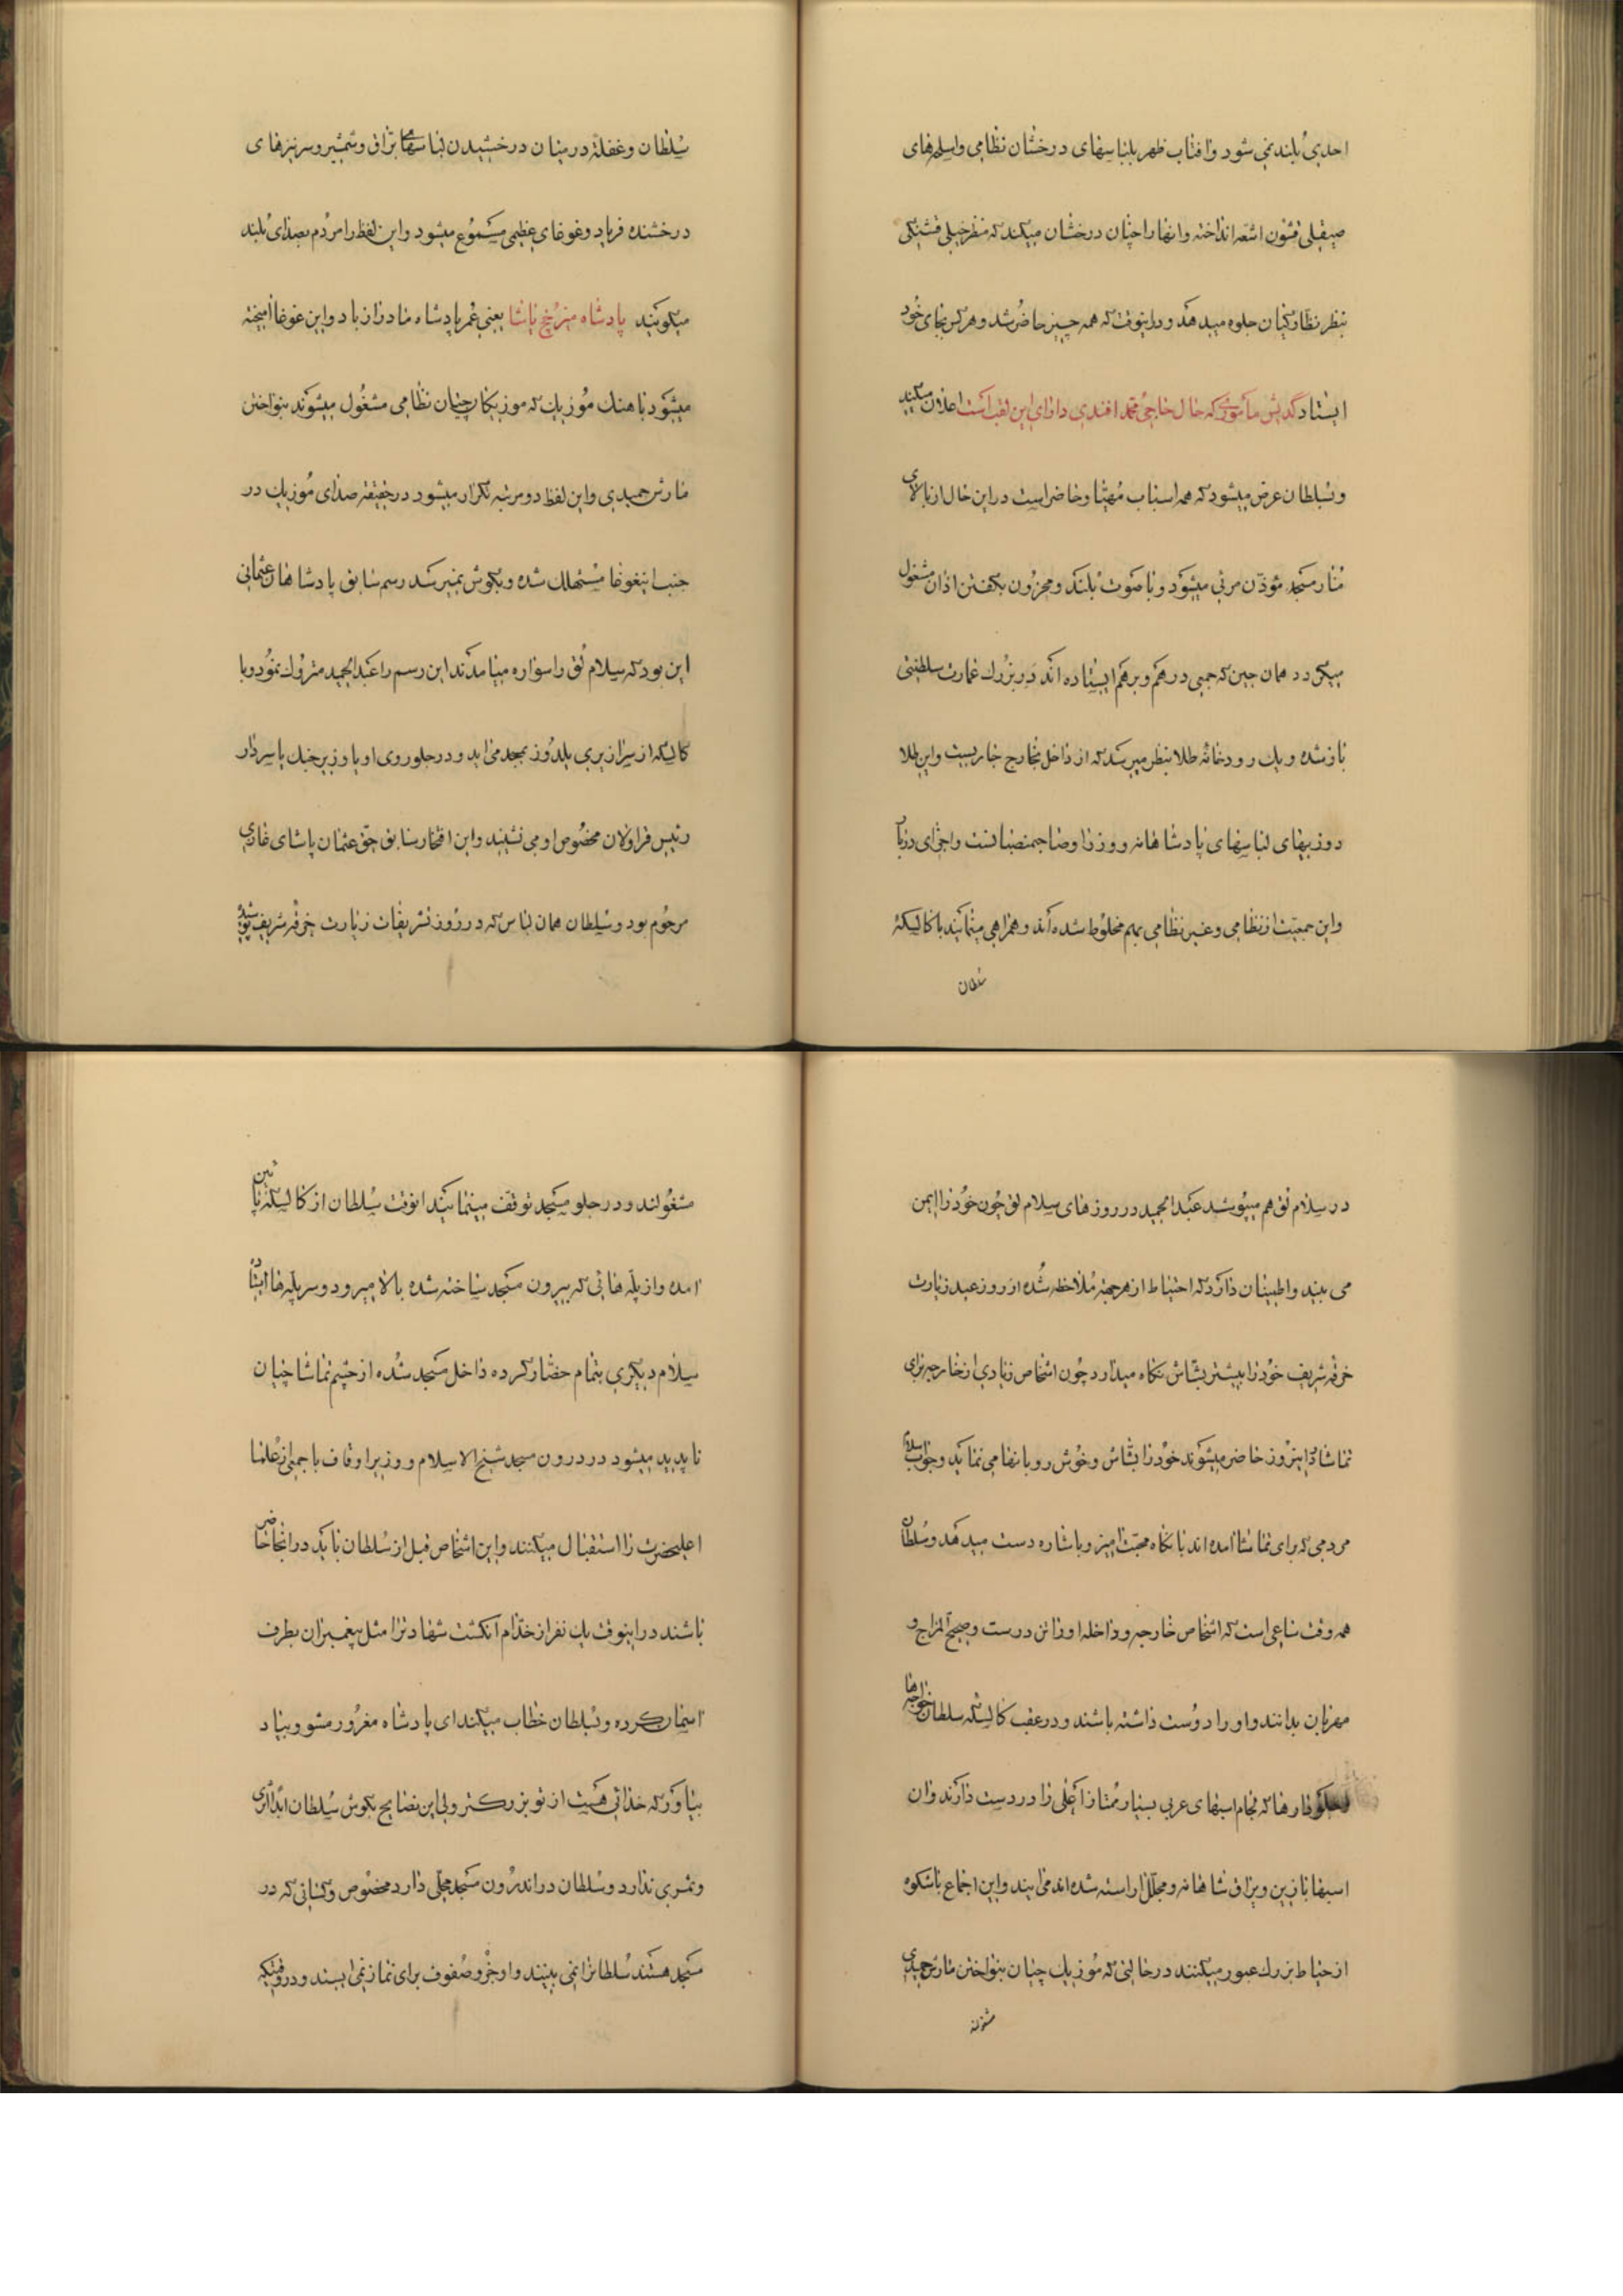 احدی بلند نمی شود و افتاب ظهر بلباسهای درخشان نظامی و اسلحهای
صیقلی قشون اشعه انداخته و انها را چنان درخشان میکند که منظر خیلی قشنگی
بنظر نظارکیان جلوه میدهد و در اینوقت که همه چیز حاضر شد و هر کس بجای خود
ایستاد کدیش مأموری که حال حاجی محمد افندی دارای این لقب است اعلان میکند
و بسلطان عرض میشود که همه اسباب مهیا و حاضر است در این حال از بالای
منار مسجد مؤذن مرئی میشود و با صوت بلند و محزون بکفتن اذان مشغول
میکردد همان حین که جمعی درهم و برهم ایستاده اند در بزرك عمارت سلطنتی
باز شده و یك رودخانه طلا بنظر میرسد که از داخل بخارج جاریست و این طلا
دوزیهای لباسهای پادشاهانه و وزرا و صاحبمنصبانست و اجزای دربار
و این جمعیت از نظامی و غیر نظامی بهم مخلوط شده اند و همراهی مینمایند با کالیکه
سلطان
سلطان و غفلة در میان درخشیدن لباسهای براق و شمشیر و سر نیزهای
درخشنده فریاد و غوغای عظیمی مسموع میشود و این لفظ را مردم بصدای بلند
میکویند پادشاه میز چخ یاشا یعنی عمر پادشاه ما دراز باد و این غوغا امیخته
میشود با هنك موزیك که موزیکانچیان نظامی مشغول میشوند بنواختن
مارش حمیدی و این لفظ دو مرتبه تکرار میشود در حقیقة صدای موزیك در
جنب اینغوغا مستهلك شده و بکوش نمیرسد رسم سابق پادشاهان عثمانی
این بود که سلام لق را سواره میامدند این رسم را عبدالحمید متروك نمود و با
کالسکه از سرازیری یلدوز بمسجد می اید و در جلو روی او یا وزیر جنك یا سردار
رئیس قراولان مخصوص او می نشیند و این افتخار سابق حق عثمان پاشای غازی
مرحوم بود و سلطان همان لباس که در روز تشریفات زیارت خرقه شریف پوشیده
در سلام لق هم میپوشد عبدالحمید در روزهای سلام لق چون خود را ایمن
می بیند و اطمینان دارد که احتیاط از هر جهة ملاحظه شده از روز عید زیارت
خرقه شریف خود را بیشتر بشاش نکاه میدارد چون اشخاص زیادی از خارجه برای
تماشا در اینروز حاضر میشوند خود را بشاش و خوش رو بانها می نماید و جواب سلام
مردمی که برای تماشا امده اند با نکاه محبت امیز و باشاره دست میدهد و سلطان
همه وقت ساعی است که اشخاص خارجه و داخله او را تن درست و صحیح المزاج و
مهربان بدانند و او را دوست داشته باشند و در عقب کالسکه سلطان خواجه ها
و جلودارها که لجام اسبهای عربی بسیار ممتاز اعلی را در دست دارند و ان
اسبها با زین و یراق شاهانه و مجلل اراسته شده اند می ایند و این اجماع باشکوه
از حیاط بزرك عبور میکنند در حالتی که موزیك چیان بنواختن مارش حمیدی
مشغولند
مشغولند و در جلو مسجد توقف مینمایند انوقت سلطان از کالسکه پائین
امده و از پله هائی که بیرون مسجد ساخته شده بالا میرود و سر پله ها ایستاده
سلام دیکری بتمام حضار کرده داخل مسجد شده از چشم تماشاچیان
ناپدید میشود در درون مسجد شیخ الاسلام و وزیر اوقاف با جمعی از علما
اعلیحضرت را استقبال میکنند و این اشخاص قبل از سلطان باید در انجا حاضر
باشند در اینوقت یك نفر از خدام انکشت شهادترا مثل پیغمبران بطرف
اسمان کرده و بسلطان خطاب میکند ای پادشاه مغرور مشو و بیاد
بیاور که خدائی هست از تو بزرکتر ولی این نصایح بکوش سلطان ابدا اثری
و ثمری ندارد و سلطان در اندرون مسجد محلی دارد مخصوص و کسانی که در
مسجد هستند سلطانرا نمی بینند و او جزو صفوف برای نماز نمی ایستد و در وقتیکه